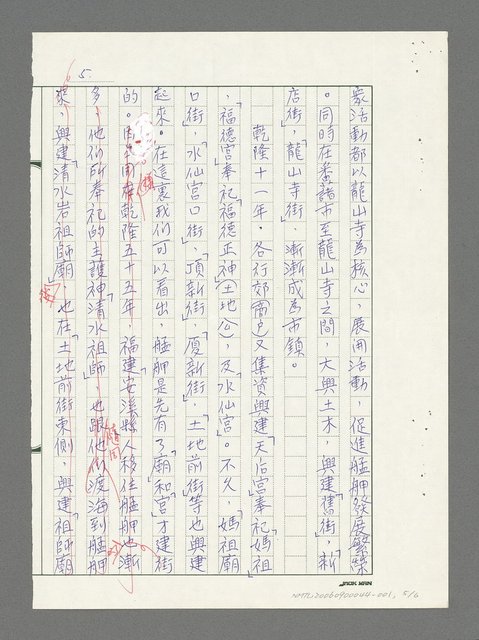 5.
眾活動都以龍山寺為核心，展開活動，促進艋舺發展繁榮
。同時在番薯市至龍山寺之間，大興土木，興建「舊街」，「新
店街」，「龍山寺街」，漸漸成為市鎮。
乾隆十一年，各行郊商又集資興建「天后宮」奉祀「媽祖」
，「福德宮」奉祀「福德正神」（土地公），及「水仙宮」。不久，「媽祖廟
口街」，「水仙宮口街」，「頂新街」，「廈新街」，「土地前街」等也興建
起來。在這裏我們可以看出，艋舺是先有了「廟」和「宮」才建街
的。乾隆五十五年，福建安溪縣人移住艋舺也漸
多，他們所奉祀的主護神「清水祖師」也跟他們渡海到艋舺
來，興建「清水岩祖師廟」，也在「土地前街」東側，興建「祖師廟
NMTL20060900044-001, 5/6